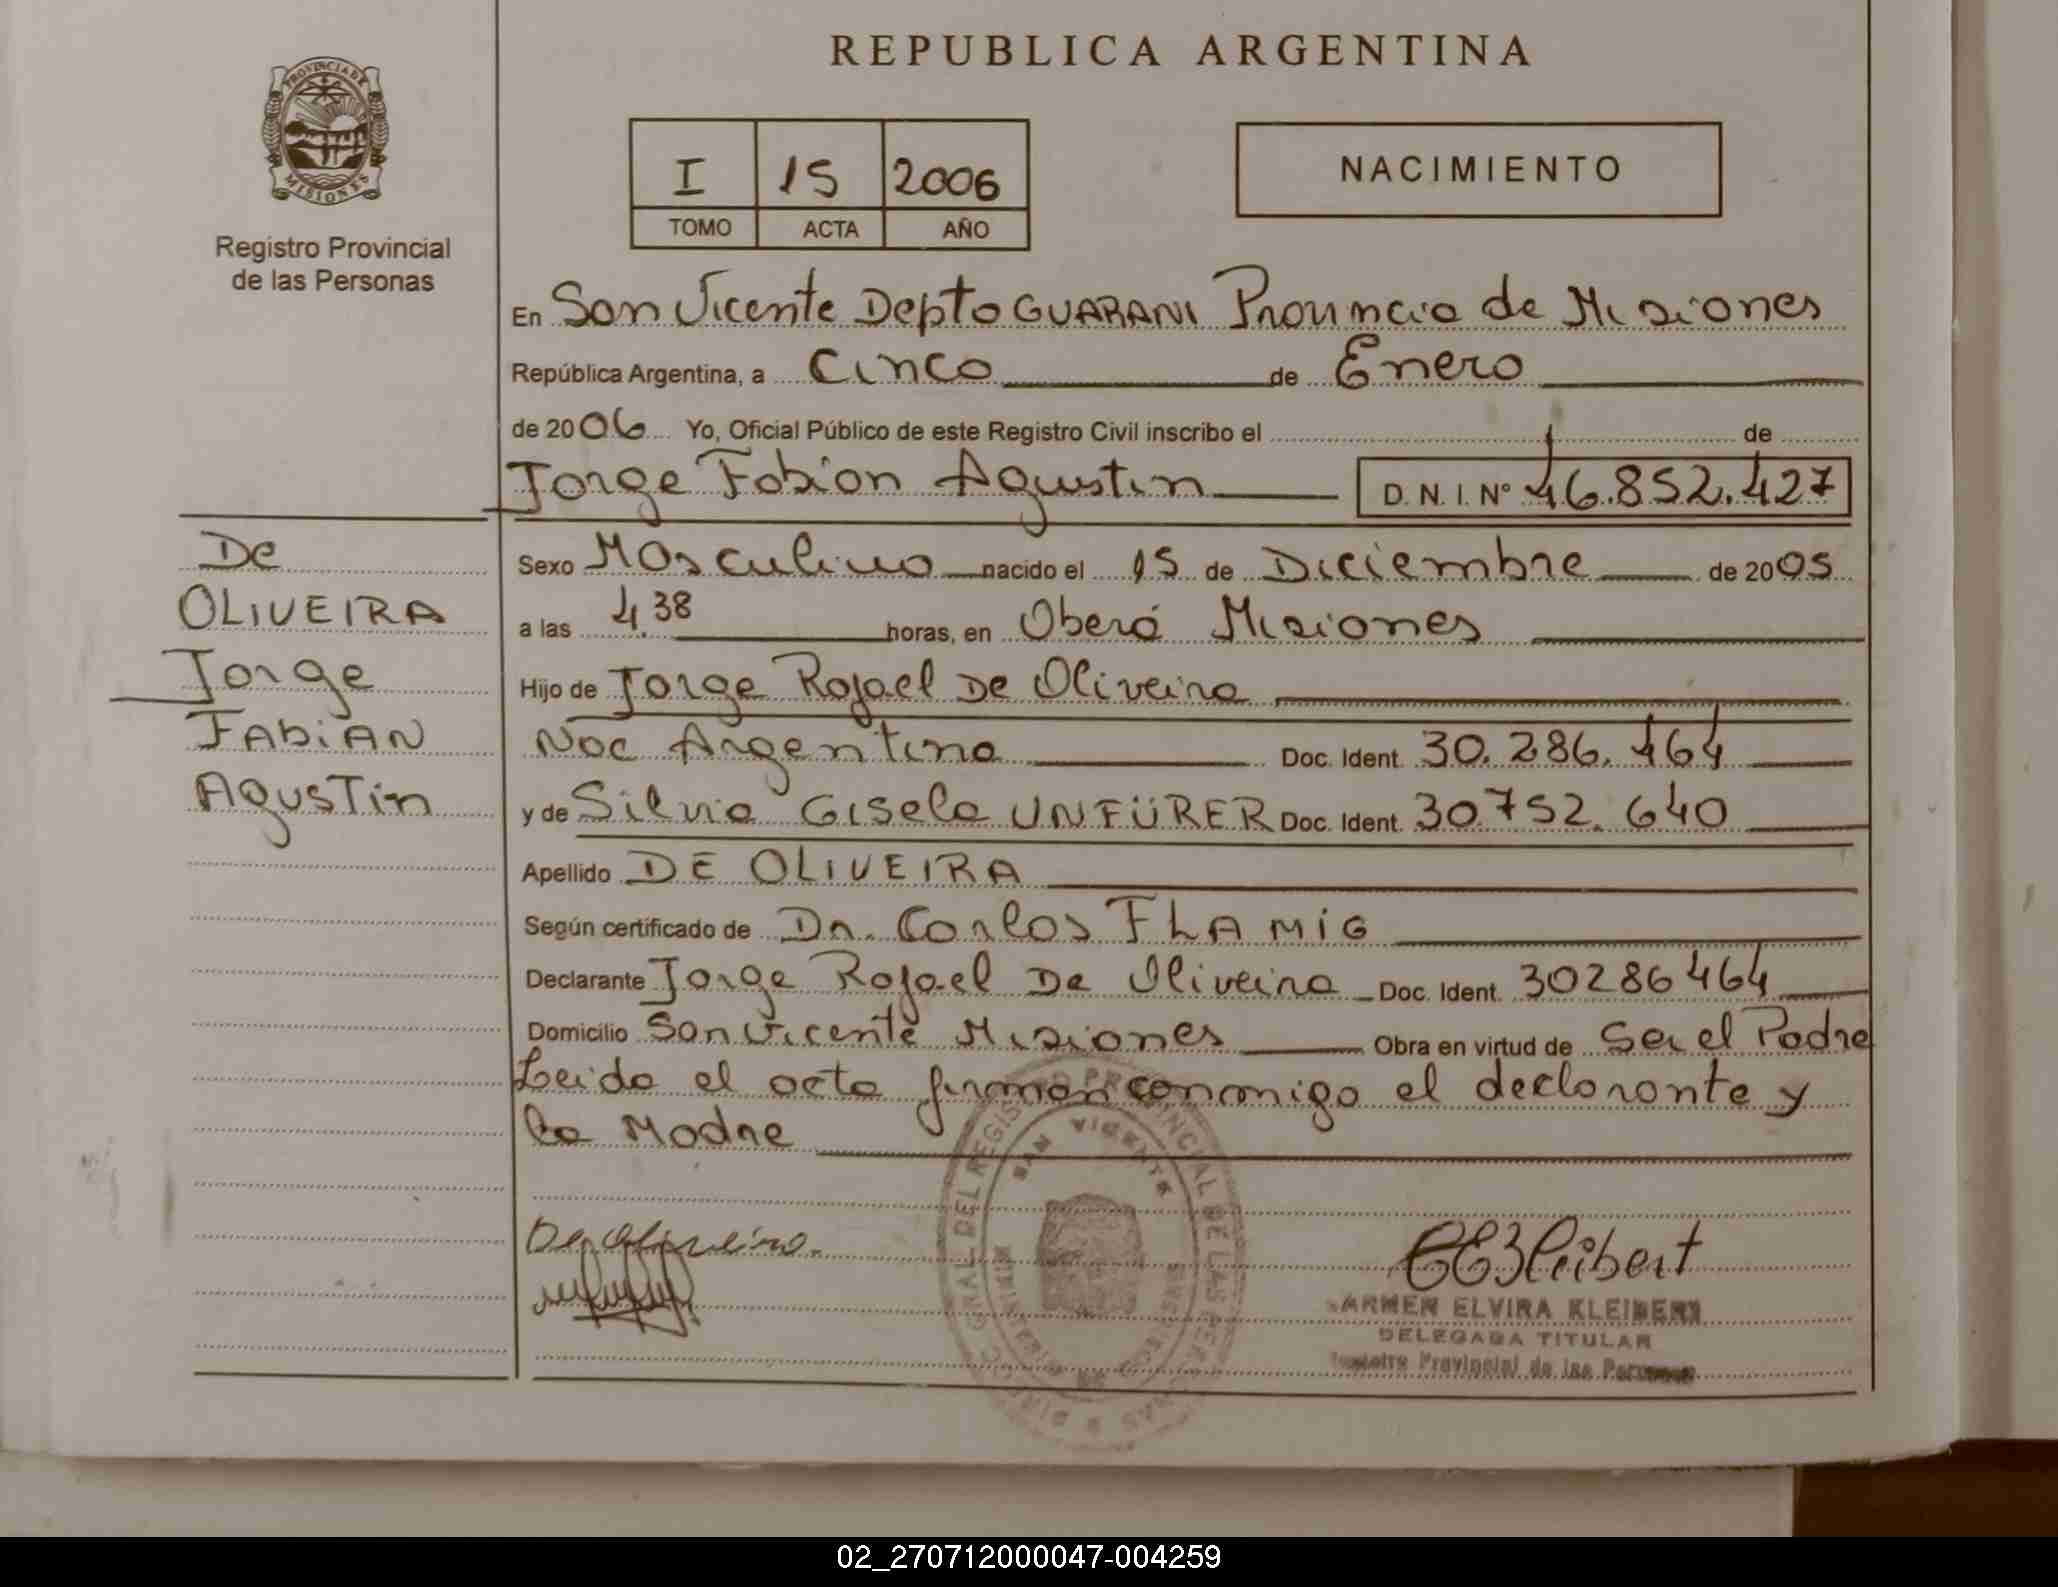 REPUBLICA ARGENTINA
PROVINCIA DE
MISIONES
Registro Provincial
de las Personas
I 15 2006
TOMO ACTA AÑO
NACIMIENTO
En San Vicente Depto GUARANI Provincia de Misiones
República Argentina, a Cinco de Enero
de 2006 Yo, Oficial Público de este Registro Civil inscribo el de
Jorge Fabian Agustin D. N. I. Nº 46.852.427
De
OLIVEIRA
Jorge
FABiAN
AgusTin
Sexo Masculino nacido el 15 de Diciembre de 2005
a las 4.38 horas, en Oberá Misiones
Hijo de Jorge Rafael De Oliveira
Nac Argentina Doc. Ident. 30.286.464
y de Silvia Gisela UNFÜRER Doc. Ident. 30752.640
Apellido DE OLIVEIRA
Según certificado de Dr. Carlos FLAMiG
Declarante Jorge Rafael De Oliveira Doc. Ident. 30286464
Domicilio San Vicente Misiones Obra en virtud de Ser el Padre
Leida el acta firman conmigo el declarante y
la Madre
SAN VICENTE
De Oliveira.
CEKleibert
CARMEN ELVIRA KLEIBERT
DELEGADA TITULAR
Registro Provincial de las Personas
02_270712000047-004259